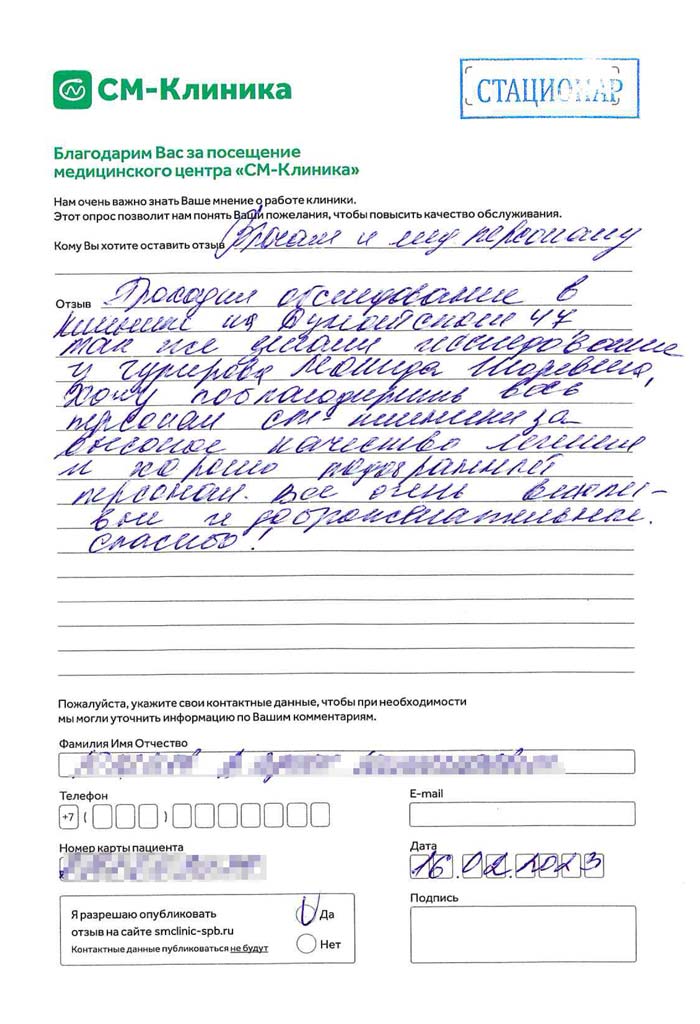 СМ-Клиника
СТАЦИОНАР
Благодарим Вас за посещение
медицинского центра «СМ-Клиника»
Нам очень важно знать Ваше мнение о работе клиники.
Этот опрос позволит нам понять Ваши пожелания, чтобы повысить качество обслуживания.
Кому Вы хотите оставить отзыв Врачам и мед персоналу
Отзыв Проходил обследование в
клинике на Дунайском 47,
так же делали исследование
у Леонида Игоревича,
Хочу поблагодарить весь
персонал СМ-клиники за
высокое качество лечения
и хорошо подобранный
персонал. Все очень вежли-
вые и доброжелательные.
Спасибо!
Пожалуйста, укажите свои контактные данные, чтобы при необходимости
мы могли уточнить информацию по Вашим комментариям.
Фамилия Имя Отчество
Телефон
+7 ( )
E-mail
Номер карты пациента
Дата
16.02.2023
Я разрешаю опубликовать
отзыв на сайте smclinic-spb.ru
Контактные данные публиковаться не будут
Да
Нет
Подпись